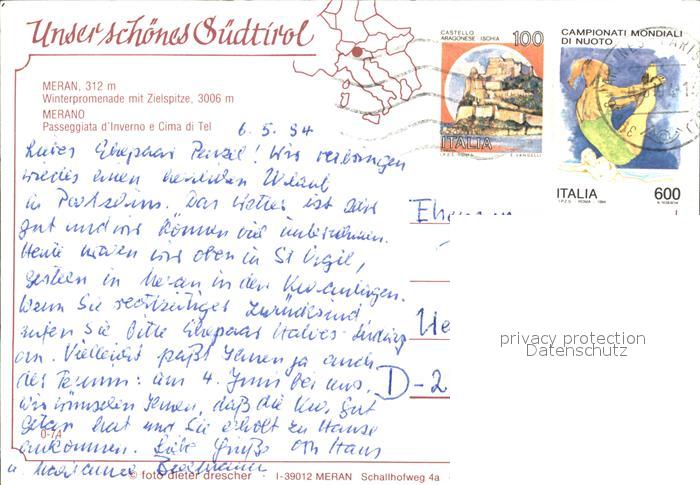 Unser schönes Südtirol
MERAN, 312 m
Winterpromenade mit Zielspitze, 3006 m
MERANO
Passeggiata d'Inverno e Cima di Tel
CASTELLO
ARAGONESE · ISCHIA
100
ITALIA
CAMPIONATI MONDIALI
DI NUOTO
ITALIA 600
6. 5. 94
Liebes Ehepaar ! Wir verbringen
wieder einen herrlichen Urlaub
in Partschins. Das Wetter ist
gut und wir können viel unternehmen.
Heute waren wir oben in St Vigil,
gestern in Meran in den Kuranlagen.
Wenn Sie rechtzeitig zurück sind
rufen Sie bitte Ehepaar
an. Vielleicht paßt Ihnen ja auch
der Termin: am 4. Juni bei uns.
Wir wünschen Ihnen, daß die Kur gut
getan hat und Sie erholt zu Hause
ankommen. Liebe Grüße von Hans
u. Marianne
D-2
privacy protection
Datenschutz
0-7A
© foto dieter drescher · I-39012 MERAN Schallhofweg 4a